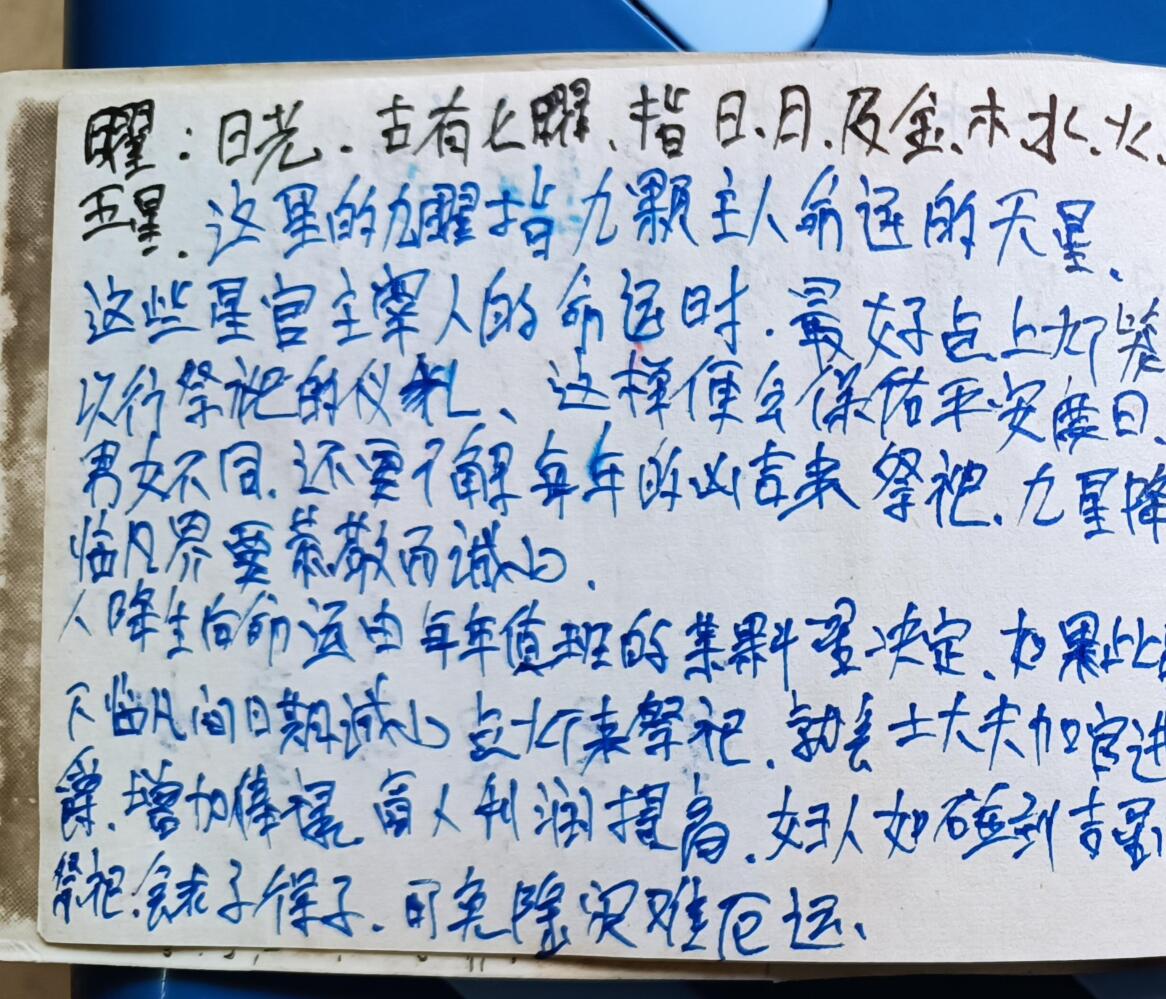 曜：日光.古有七曜、指日、月、及金、木、水、火、
五星.这里的九曜指九颗主人命运的天星、
这些星官主宰人的命运时.最好点上灯
以行祭祀的仪礼、这样便会保佑平安度日、
男女不同.还要了解每年的凶吉来祭祀.九星降
临凡界要恭敬而诚心.
人降生向命运由每年值班的某颗星决定、如果此
下临凡间日期诚心点灯来祭祀、就会士大夫加官进
爵、增加俸禄、商人利润提高、妇人如碰到吉星
祭祀.会求子得子、可免除灾难厄运、